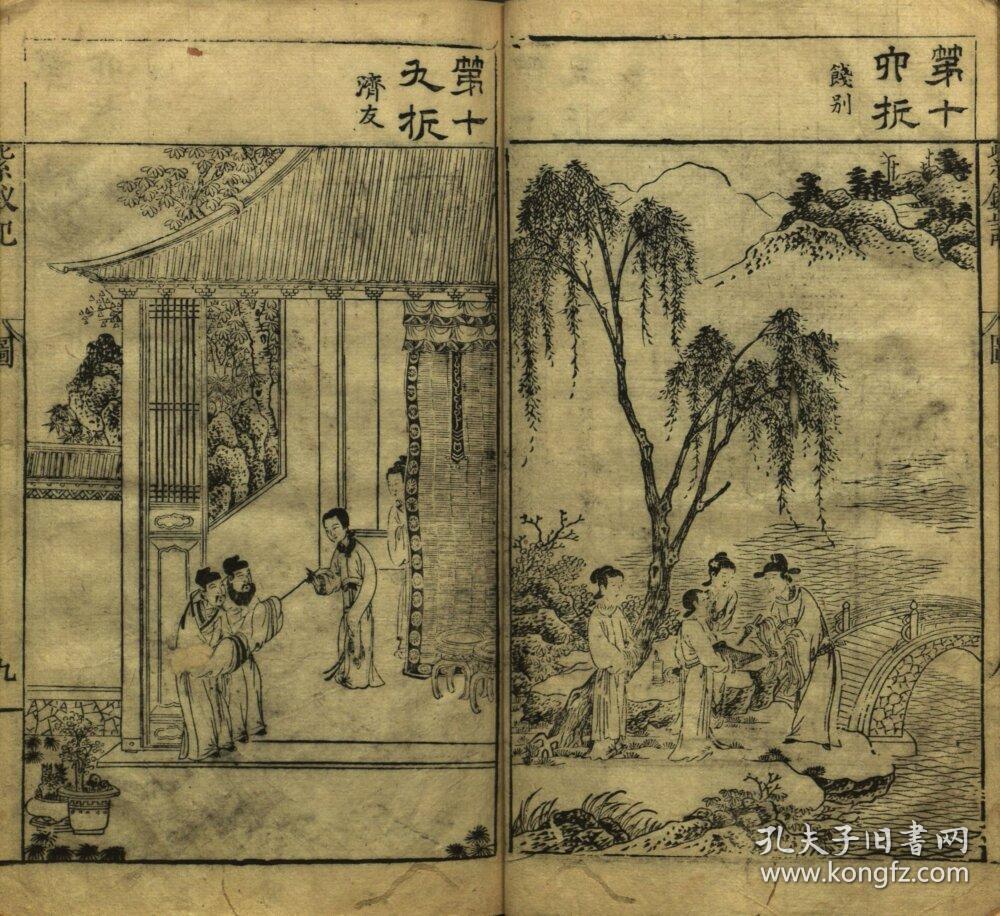 第十
六折
餞别
第十
九折
濟友
紫釵記
圖
九
孔夫子旧書网
www.kongfz.com